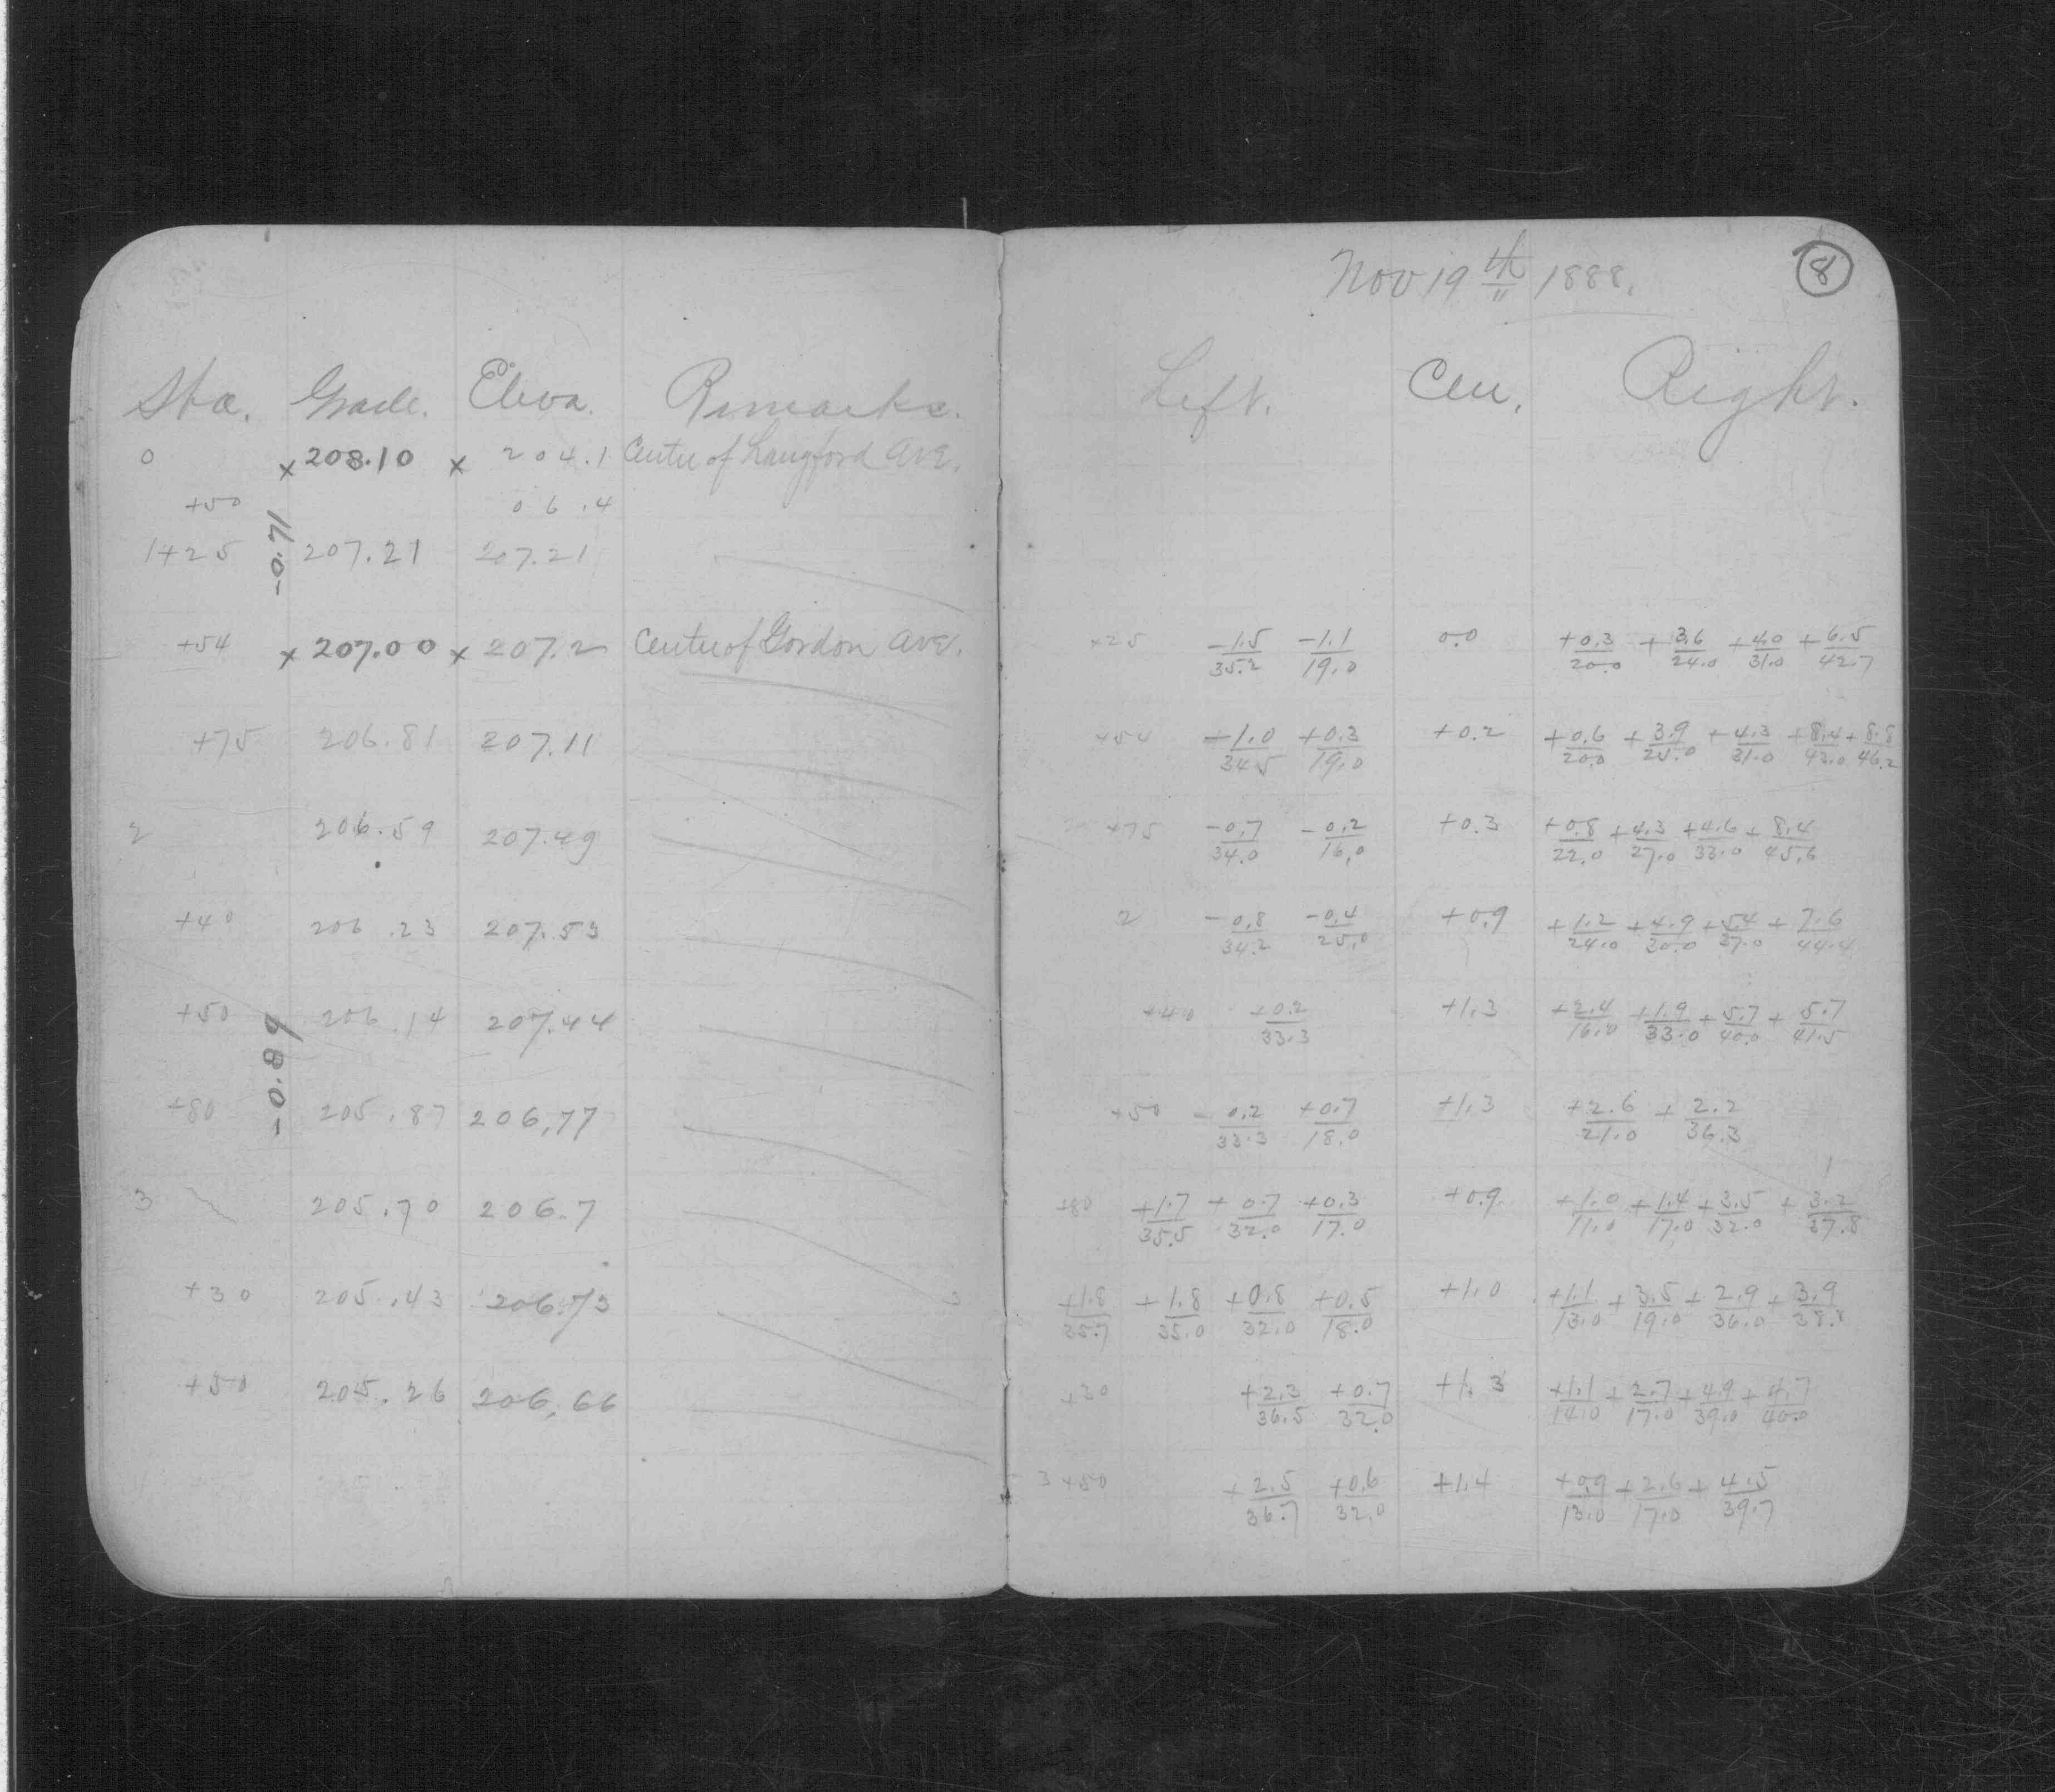 Sta. Grade. Eleva. Remarks.
0 x 208.10 x 204.1 Centre of Langford Ave.
+50 06.4
-0.71
1+25 207.21 207.21
+54 x 207.00 x 207.2 Centre of Gordon Ave.
+75 206.81 207.11
2 206.59 207.49
+40 206.23 207.53
+50 206.14 207.44
-0.89
+80 205.87 206.77
3 205.70 206.7
+30 205.43 206.73
+50 205.26 206.66
Nov 19th 1888. 8
Left. Cen. Right.
+25 -1.5/35.2 -1.1/19.0 0.0 +0.3/20.0 +3.6/24.0 +4.0/31.0 +6.5/42.7
+54 -1.0/34.5 +0.3/19.0 +0.2 +0.6/20.0 +3.9/25.0 +4.3/31.0 +8.4/43.0 +8.8/46.2
+75 -0.7/34.0 -0.2/16.0 +0.3 +0.8/22.0 +4.3/27.0 +4.6/33.0 +8.4/45.6
2 -0.8/34.2 -0.4/25.0 +0.9 +1.2/24.0 +4.9/30.0 +5.4/37.0 +7.6/44.4
+40 +0.2/33.3 +1.3 +2.4/16.0 +1.9/33.0 +5.7/40.0 +5.7/41.5
+50 -0.2/33.3 +0.7/18.0 +1.3 +2.6/21.0 +2.2/36.3
+80 +1.7/35.5 +0.7/32.0 +0.3/17.0 +0.9 +1.0/11.0 +1.4/17.0 +3.5/32.0 +3.2/37.8
3 +1.8/35.7 +1.8/35.0 +0.8/32.0 +0.5/18.0 +1.0 +1.1/13.0 +3.5/19.0 +2.9/36.0 +3.9/38.8
+30 +2.3/36.5 +0.7/32.0 +1.3 +1.1/14.0 +2.7/17.0 +4.9/39.0 +4.7/40.0
3+50 +2.5/36.7 +0.6/32.0 +1.4 +0.9/13.0 +2.6/17.0 +4.5/39.7